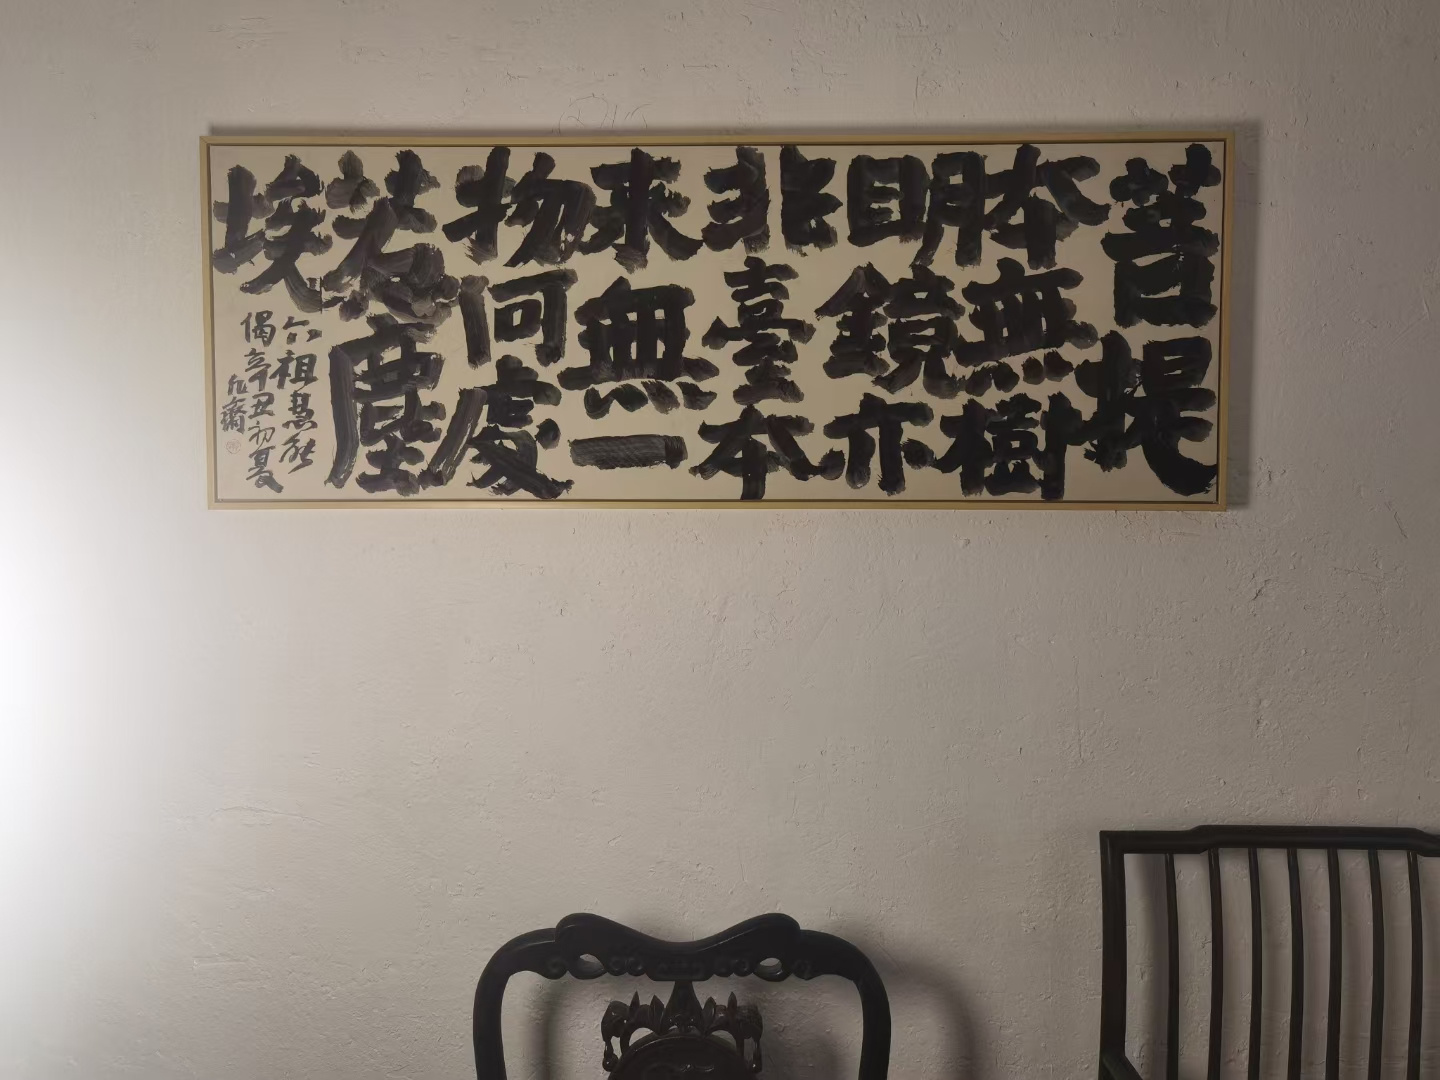 菩提
本無樹
明鏡亦
非臺本
来無一
物何處
惹塵
埃
六祖惠能
偈辛丑初夏